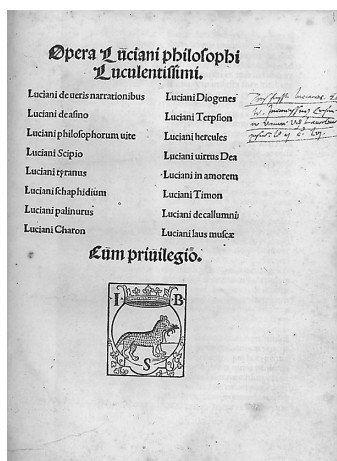 Opera Lūciani philosophi
Luculentissimi.
Luciani de ueris narrationibus
Luciani de asino
Luciani philosophorum uite
Luciani Scipio
Luciani tyranus
Luciani schaphidium
Luciani palinurus
Luciani Charon
Luciani Diogenes
Luciani Terpsion
Luciani hercules
Luciani uirtus Dea
Luciani in amorem
Luciani Timon
Luciani de callumnii
Luciani laus muscæ
Cum priuilegio.
I B
S